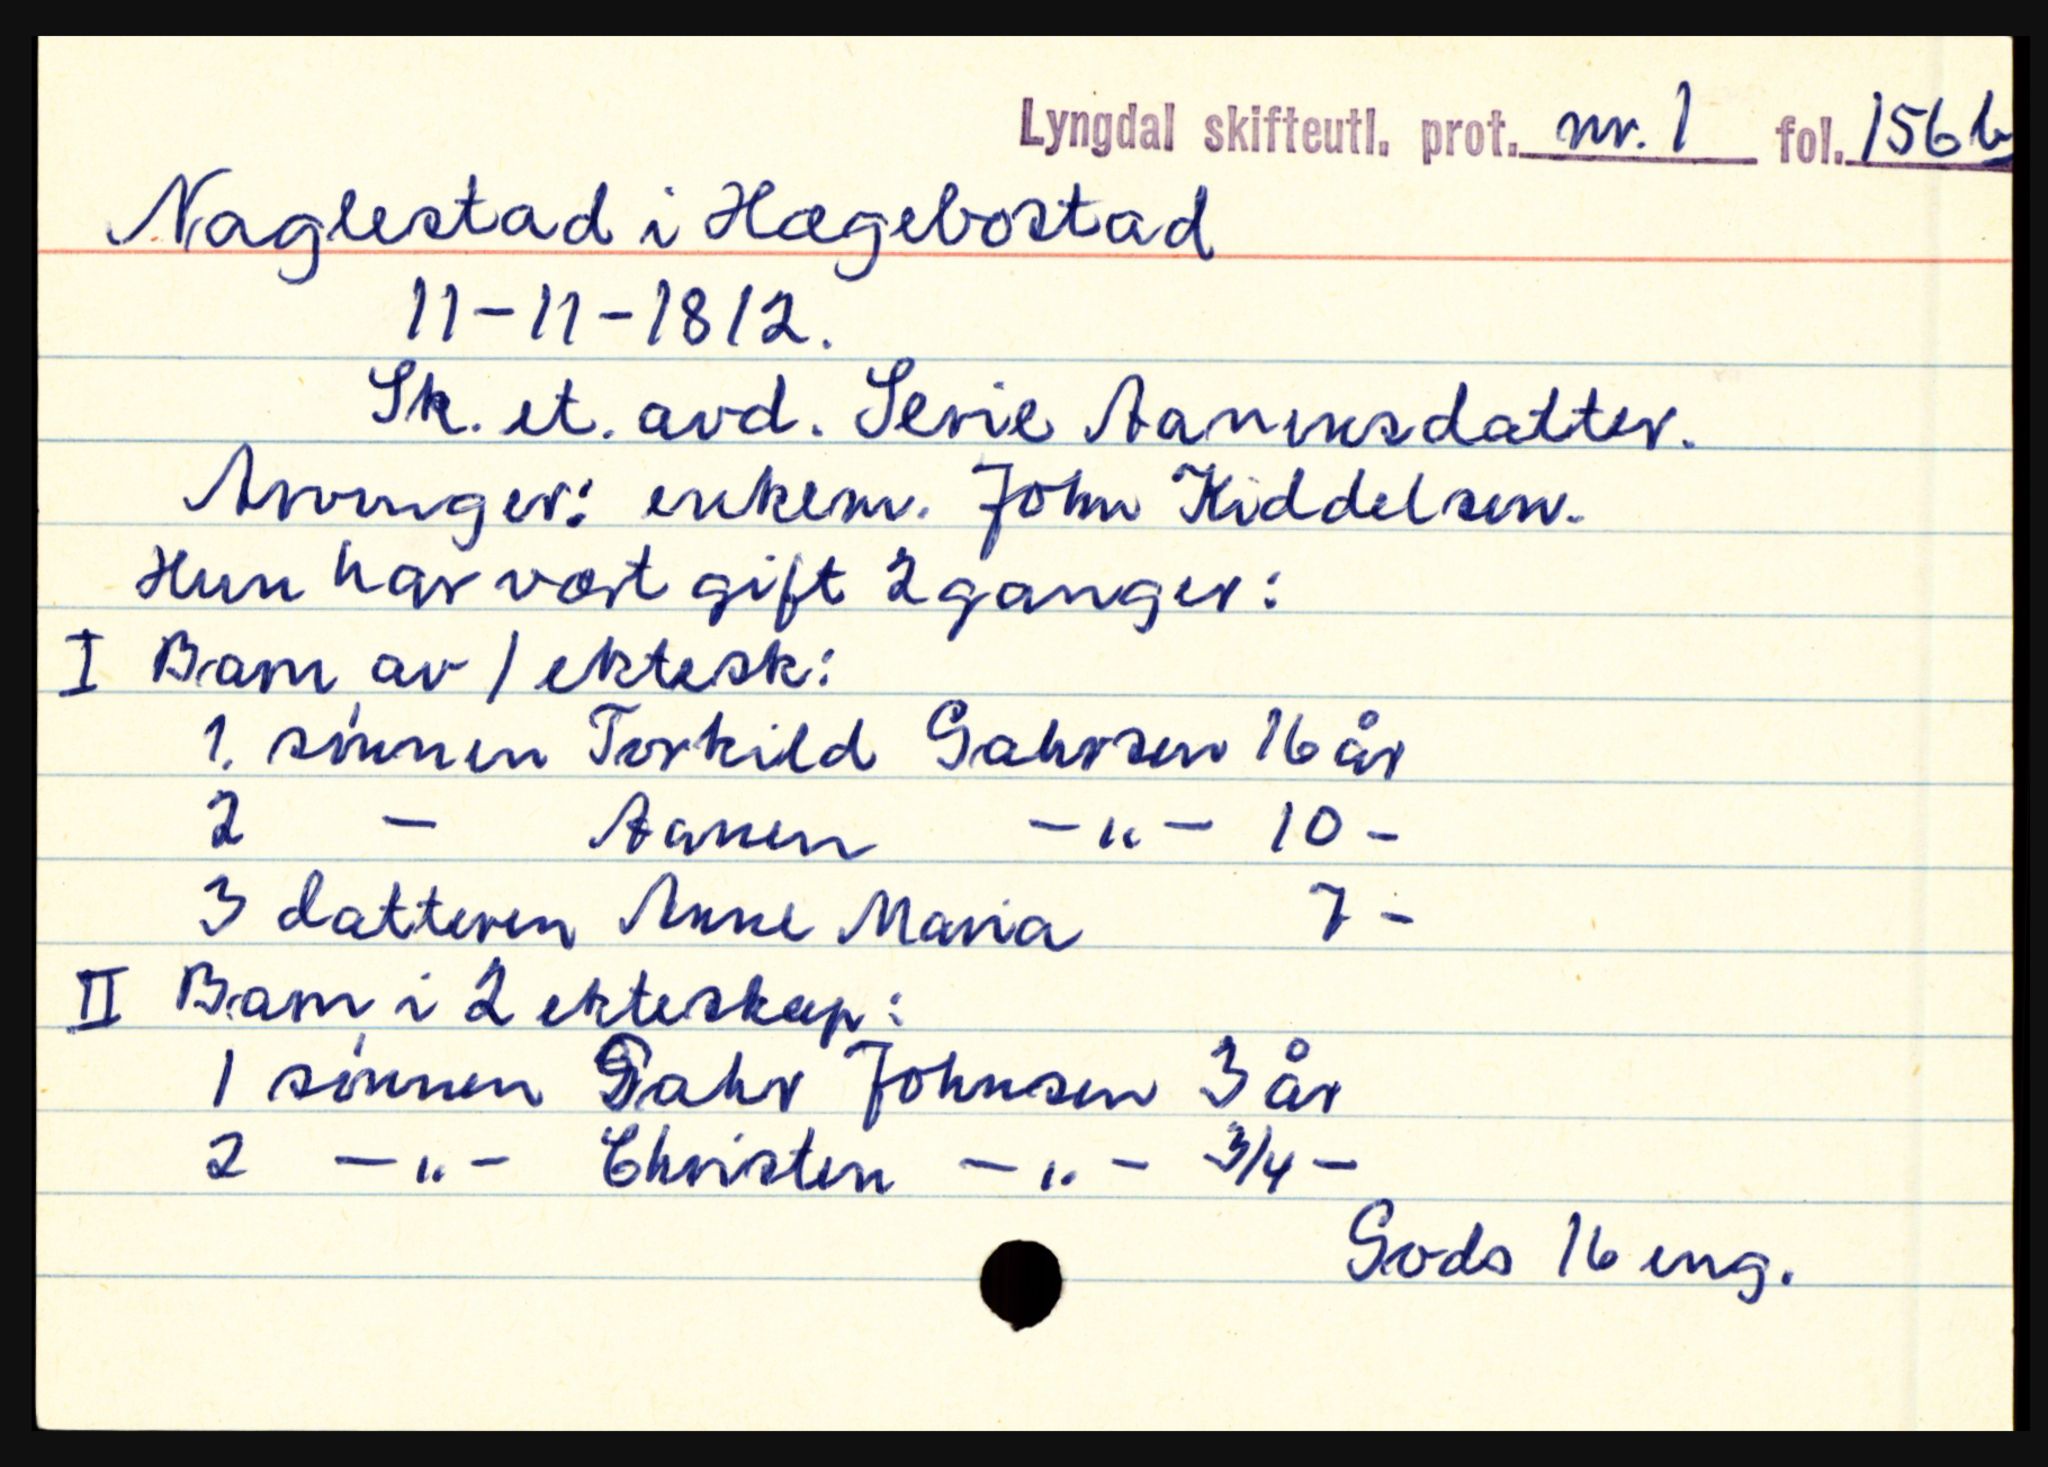 Lyngdal skifteutl. prot. nr. 1 fol. 156 b
Naglestad i Hægebostad
11-11-1812.
Sk. et. avd. Serie Aanensdatter.
Arvinger: enkem. John Kiddelsen.
Hun har vært gift 2 ganger:
I Barn av 1 ektesk:
1. sønnen Torkild Gahrsen 16 år
2 - Aanen -"- 10 -
3 datteren Anne Maria 7 -
II Barn i 2 ekteskap:
1 sønnen Gahr Johnsen 3 år
2 -"- Christen -"- 3/4 -
Gods 16 eng.